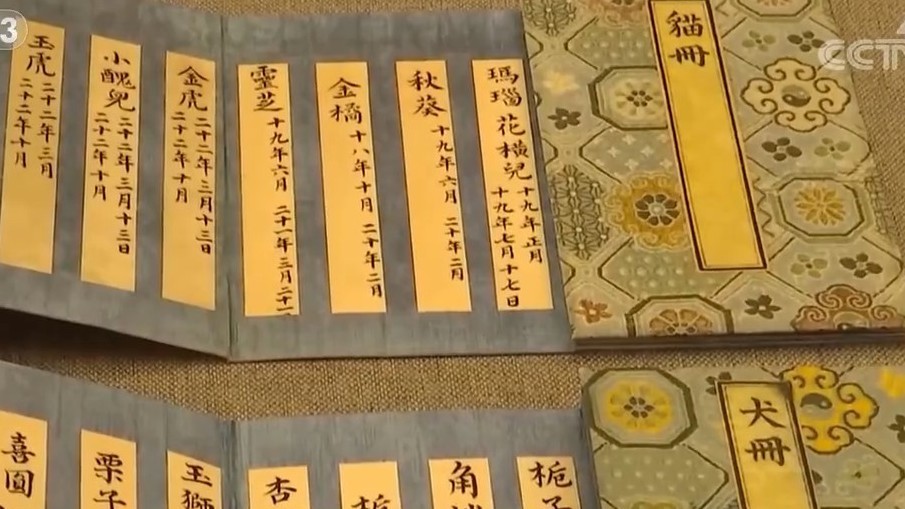 貓冊
瑪瑙
花橫兒
十九年正月
十九年七月十七日
秋葵
十九年六月
二十年二月
金橘
十八年十月
二十年二月
靈芝
十九年六月
二十一年三月二十一
金虎
二十二年三月十三日
二十二年十月
小醜兒
二十二年三月十三日
二十二年十月
玉虎
二十二年三月
二十二年十月
犬冊
栀子
角
杏
玉獅
栗子
喜圓
3
CCTV